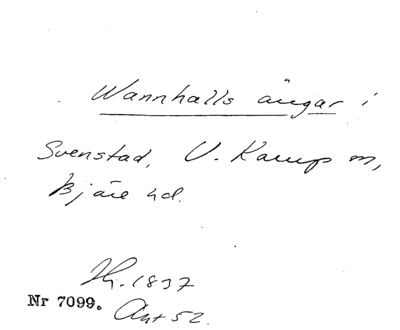 Wannhalls ängar i
Svenstad, V. Karup sn,
Bjäre hd.
Th. 1837
Nr 7099. Akt 52.